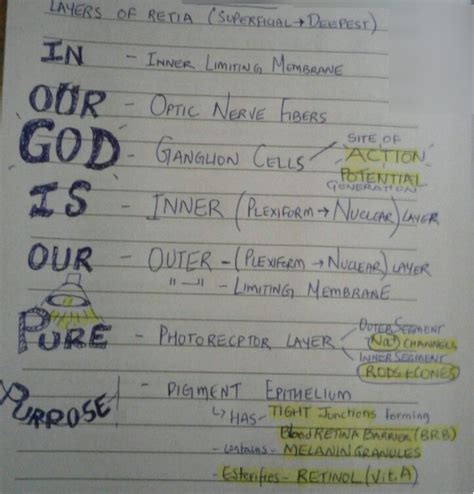 LAYERS OF RETIA (SUPERFICIAL → DEEPEST)
IN - INNER LIMITING MEMBRANE
OUR - OPTIC NERVE FIBERS
GOD - GANGLION CELLS SITE OF ACTION POTENTIAL GENERATION
IS - INNER (PLEXIFORM → NUCLEAR) LAYER
OUR - OUTER - (PLEXIFORM → NUCLEAR) LAYER
"—" - LIMITING MEMBRANE
PURE - PHOTORECPTOR LAYER OUTER SEGMENT Na+ CHANNELS
INNER SEGMENT RODS & CONES
PURPOSE - PIGMENT EPITHELIUM
↳ HAS - TIGHT Junctions forming
Blood RETINA BARRIER (BRB)
- contains - MELANIN GRANULES
- Esterifies - RETINOL (Vit.A)